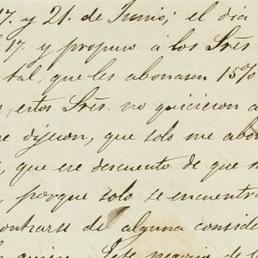 17. y 21. de Junio; el dia
17. y propuso á los Sres
tal, que les abonasen 15%
, estos Sres. no quicieron a
e dijeron, que solo me abo
, que ere descuento de que
, porque solo se encuentra
contrarse de alguna conside